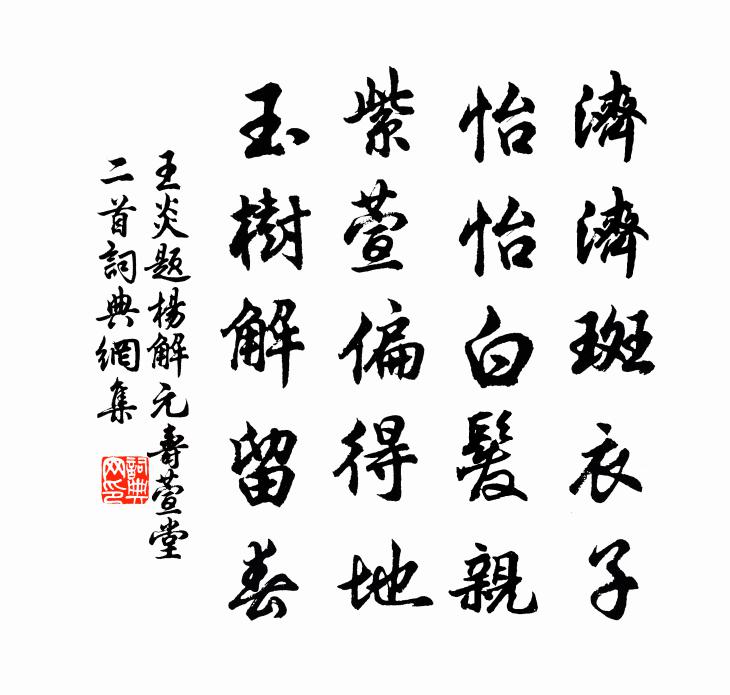 濟濟斑衣子
怡怡白髮親
紫萱偏得地
玉樹解留春
王炎題楊解元壽萱堂
二首詞典網集
詞典网印